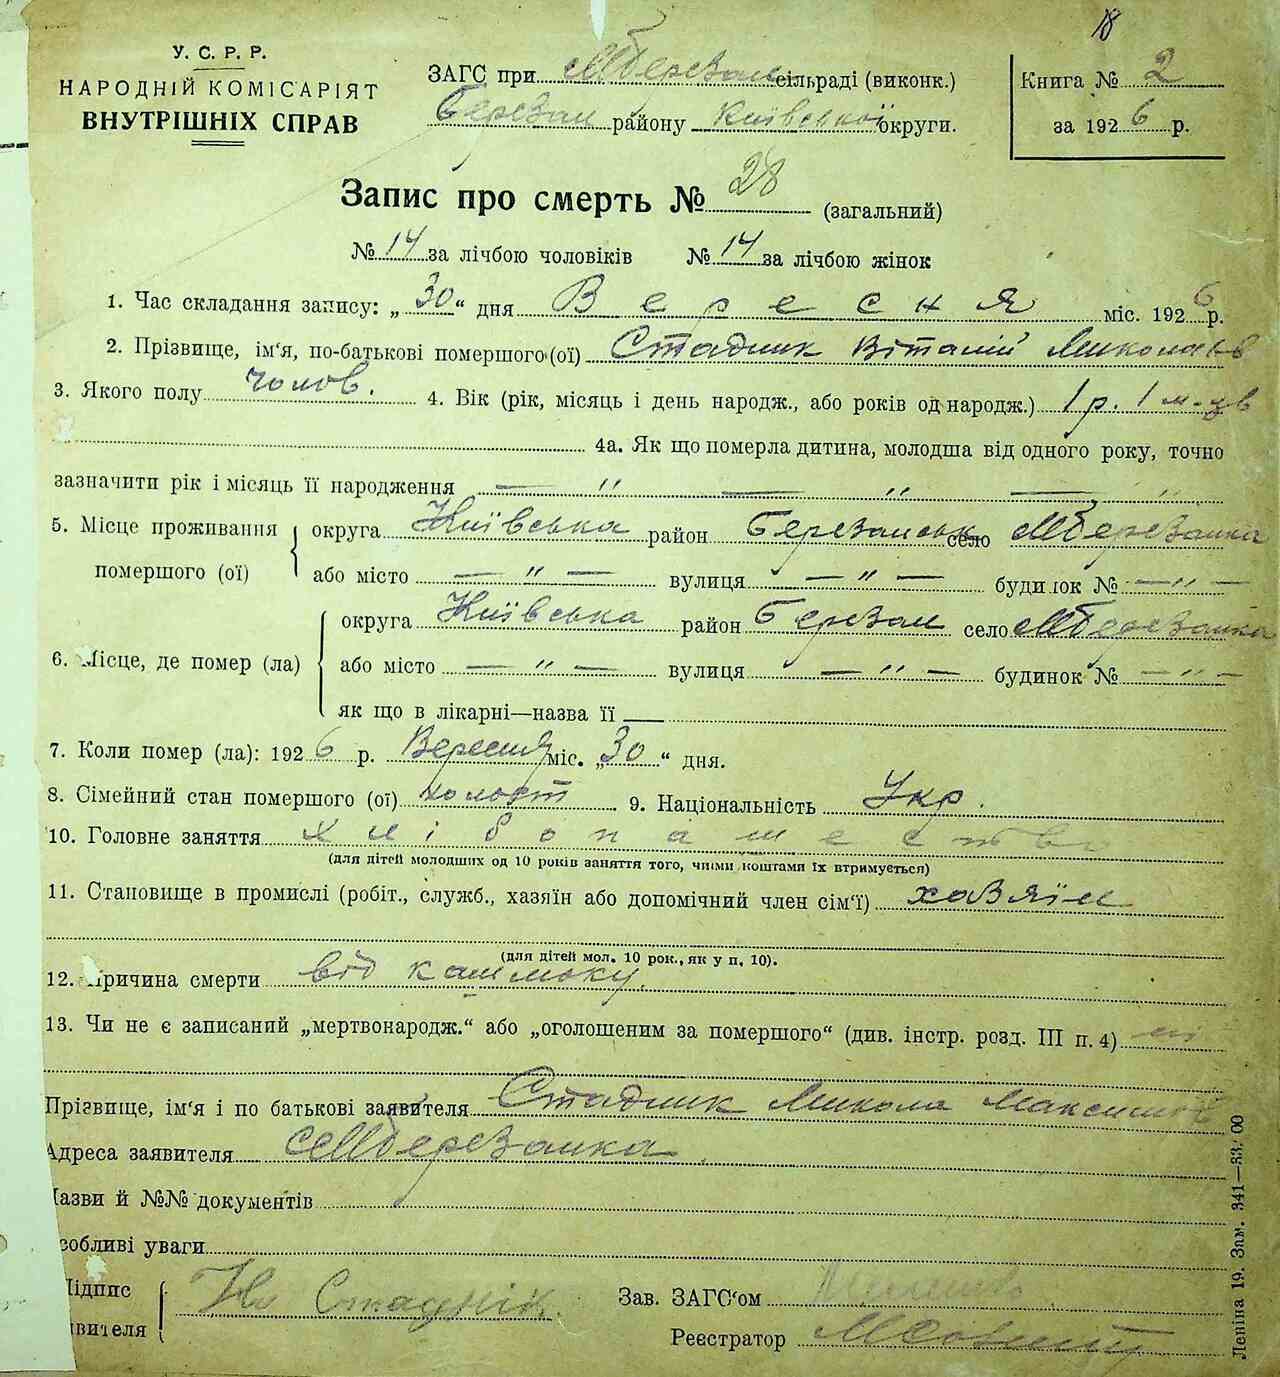 18
У. С. Р. Р.
НАРОДНІЙ КОМІСАРІЯТ
ВНУТРІШНІХ СПРАВ
ЗАГС при МБерезан сільраді (виконк.)
Березан району Київської округи.
Книга № 2
за 1926 р.
Запис про смерть № 28 (загальний)
№ 14 за лічбою чоловіків № 14 за лічбою жінок
1. Час складання запису: „30“ дня Вересня міс. 1926 р.
2. Прізвище, ім‘я, по-батькові помершого (ої) Стадник Віталій Миколаїв
3. Якого полу чолов. 4. Вік (рік, місяць і день народж., або років од народж.) 1 р. 1 м-ців
4а. Як що померла дитина, молодша від одного року, точно
зазначити рік і місяць її народження — " — " — "
5. Місце проживання помершого (ої) округа Київська район Березанськ село МБерезанка
або місто — " — вулиця — " — будинок № — " —
6. Місце, де помер (ла) округа Київська район Березан село МБерезанка
або місто — " — вулиця — " — будинок № — " —
як що в лікарні—назва її —
7. Коли помер (ла): 1926 р. Вересня міс. „30“ дня.
8. Сімейний стан помершого (ої) холост 9. Національність Укр.
10. Головне заняття хлібопашество
(для дітей молодших од 10 років заняття того, чиїми коштами їх втримується)
11. Становище в промислі (робіт., служб., хазяїн або допомічний член сім‘ї) хазяїн
(для дітей мол. 10 рок., як у п. 10).
12. Причина смерти від кашлюку.
13. Чи не є записаний „мертвонародж.“ або „оголошеним за помершого“ (див. інстр. розд. III п. 4) ні
Прізвище, ім‘я і по батькові заявителя Стадник Микола Максимов
Адреса заявителя с МБерезанка
Назви й №№ документів
Особливі уваги
Підпис
явителя
Стаднік.
Зав. ЗАГС‘ом
Реєстратор
Леніна 19. Зам. 341—83.00